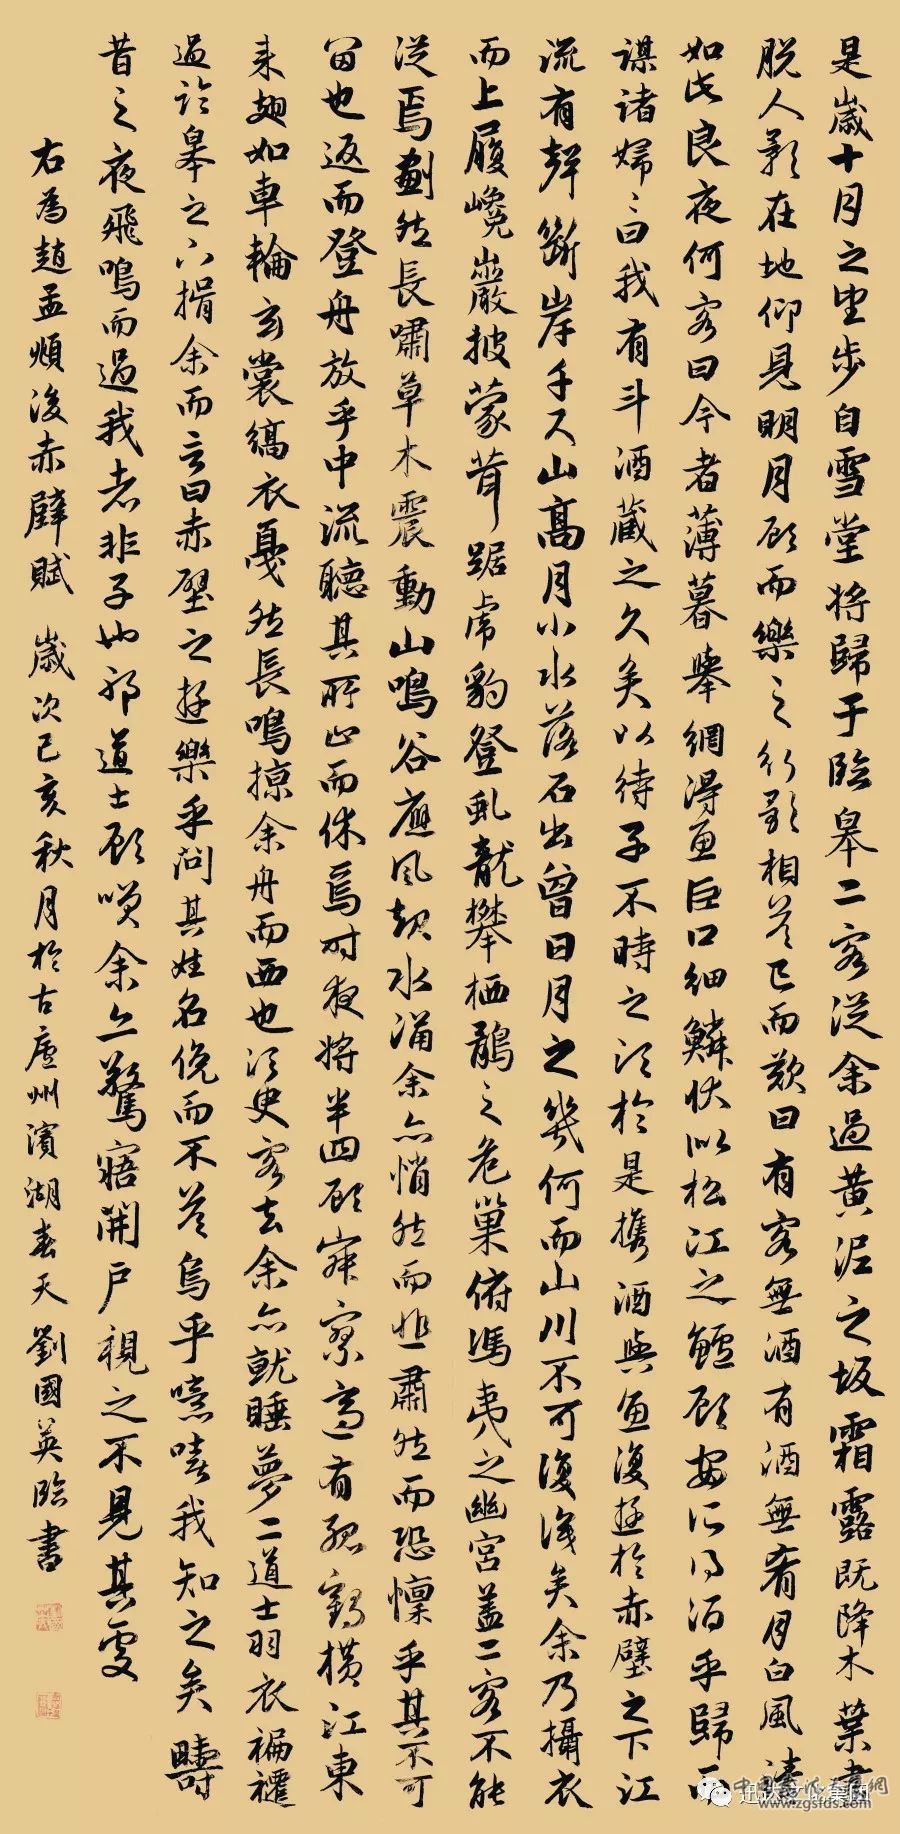 是歲十月之望步自雪堂將歸于臨皋二客從余過黃泥之坂霜露既降木葉盡
脫人影在地仰見明月顧而樂之行歌相答已而歎曰有客無酒有酒無肴月白風清
如此良夜何客曰今者薄暮舉網得魚巨口細鱗狀似松江之鱸顧安所得酒乎歸而
謀諸婦〻曰我有斗酒藏之久矣以待子不時之須於是攜酒與魚復遊於赤壁之下江
流有聲斷岸千尺山高月小水落石出曾日月之幾何而山川不可復識矣余乃攝衣
而上履巉巖披蒙茸踞虎豹登虬龍攀栖鶻之危巢俯馮夷之幽宮蓋二客不能
從焉劃然長嘯草木震動山鳴谷應風起水涌余亦悄然而悲肅然而恐懍乎其不可
留也返而登舟放乎中流聽其所止而休焉時夜將半四顧寂寥適有孤鶴橫江東
來翅如車輪玄裳縞衣戛然長鳴掠余舟而西也須臾客去余亦就睡夢二道士羽衣褊褼
過臨皋之下揖余而言曰赤壁之遊樂乎問其姓名俛而不答烏乎噫嘻我知之矣疇
昔之夜飛鳴而過我者非子也邪道士顧笑余亦驚寤開戶視之不見其處
右為趙孟頫後赤壁賦 歲次己亥秋月於古廬州濱湖春天劉國英臨書
www.zgsfds.com